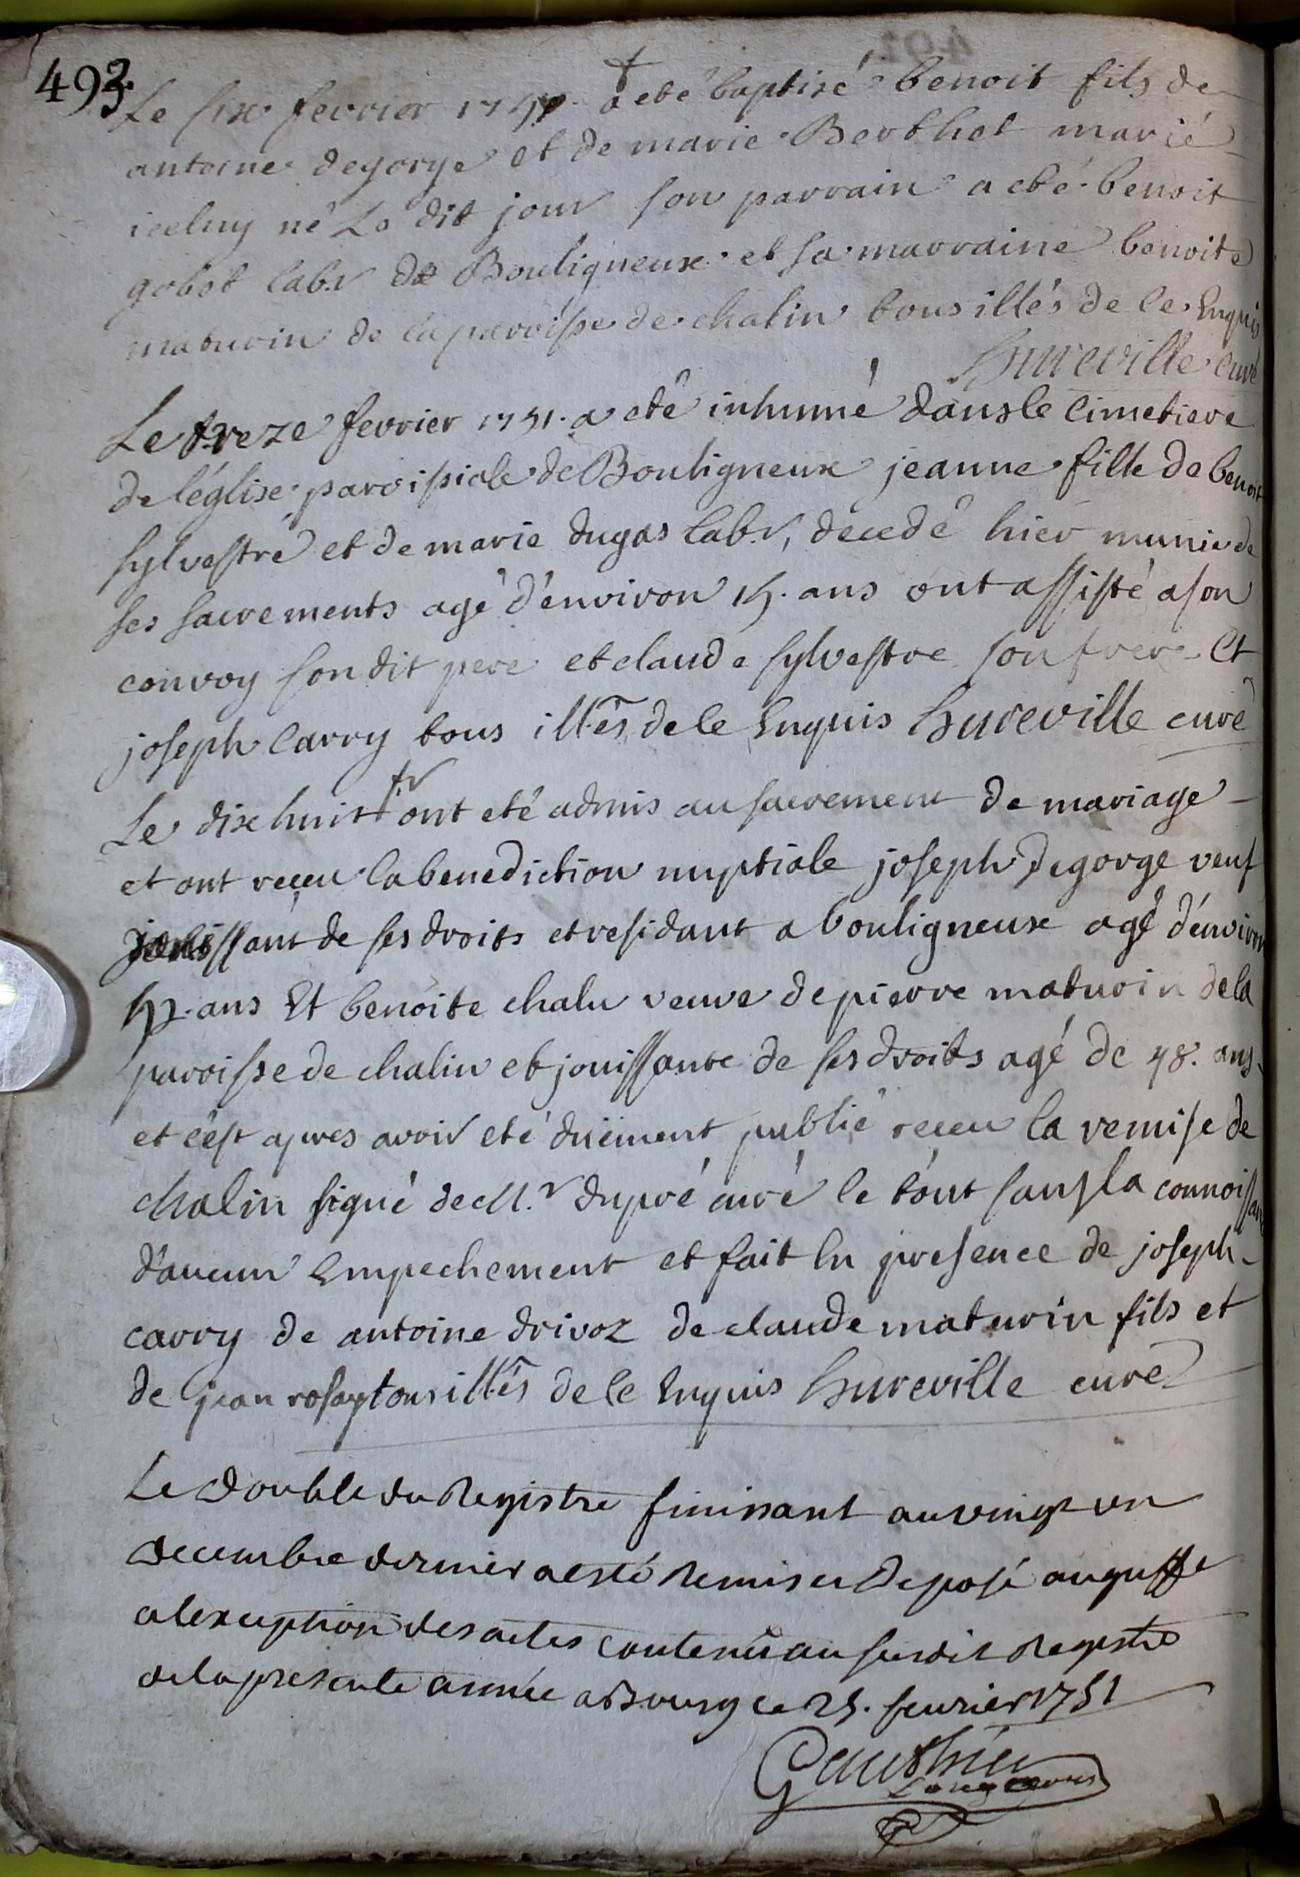 493
Le six fevrier 1751 a eté baptisé benoit fils de
antoine degorge et de marie Berthet marié
iceluy né Le dit jour son parrain a eté benoit
gobet labr de Bouligneux et sa marraine benoite
maturin de la paroisse de chalin tous illés de ce Enquis
hureville curé
Le treze fevrier 1751 a eté inhumé dans le Cimetiere
de l'église paroissiale de Bouligneux jeanne fille de benoit
sylvestre et de marie dugas labr, décedé hier munie de
ses sacrements agé d'environ 15. ans ont assisté a son
convoy son dit pere et claude sylvestre son frere Et
joseph Carry tous illés de ce Enquis hureville curé
Le dixhuit fr ont eté admis au sacrement de mariage
et ont reçeu la benediction nuptiale joseph degorge veuf
jouissant de ses droits et residant a bouligneux agé d'environ
52. ans Et benoite chalu veuve de pierre maturin de la
paroisse de chalin et jouissante de ses droits agé de 48. ans
et c'est apres avoir eté düement publié receu la remise de
chalin signé de M.r dupré curé le tout sans la connoissance
d'aucun Empechement et fait En presence de joseph
carry de antoine drivoz de claude maturin fils et
de jean rosay tous illés de ce Enquis hureville curé
Le double du Registre finissant au vingt un
decembre dernier a esté Remis et Deposé au greffe
a lexception des actes contenus au susdit Registre
de la presente année a Bourg ce 25. fevrier 1751
Gauthier